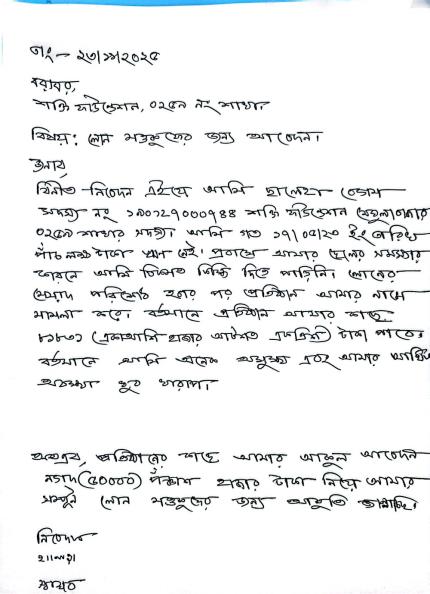 তাং- ২৩/১১/২০২৫
বরাবর,
শক্তি ফাউন্ডেশন, ০২৫৯ নং শাখা।
বিষয়: লোন মওকুফের জন্য আবেদন।
জনাব,
বিনীত নিবেদন এইযে আমি ছালেহা বেগম
সদস্য নং ১৯০১২৭০০০৭৪৪ শক্তি ফাউন্ডেশন
০২৫৯ শাখার সদস্য। আমি গত ১৭/০৫/২৩ ইং তারিখ
পাঁচ লক্ষ টাকা ঋণ নেই। পরবর্তে আমার ছেলের সমস্যার
কারনে আমি কিস্তি দিতে পারিনি। লোনের
মেয়াদ পরিশোধ হবার পর প্রতিষ্ঠান আমার নামে
মামলা করে। বর্তমানে প্রতিষ্ঠান আমার কাছে
৮১৮৩১ (একাআশি হাজার আটশত একত্রিশ) টাকা পাবে।
বর্তমানে আমি অনেক অসুস্থ্য এবং আমার আর্থিক
অবস্থ্যা খুব খারাপ।
অতএব, প্রতিষ্ঠানের কাছে আমার আকুল আবেদন
নগদ (৫০০০০) পঁঞ্চাশ হাজার টাকা নিয়ে আমার
সম্পূর্ন লোন মওকুফের জন্য আকুতি জানাচ্ছি।
নিবেদক
ছালেহা